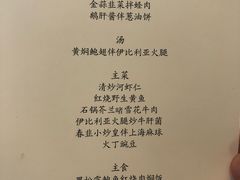 金蒜韭菜拌蛏肉
鹅肝酱伴葱油饼
汤
黄焖鲍翅伴伊比利亚火腿
主菜
清炒河虾仁
红烧野生黄鱼
石锅芥兰啫雪花牛肉
伊比利亚火腿炒牛肝菌
春韭小炒皇伴上海麻球
火丁豌豆
主食
黑松露鲍鱼红烧肉焖饭